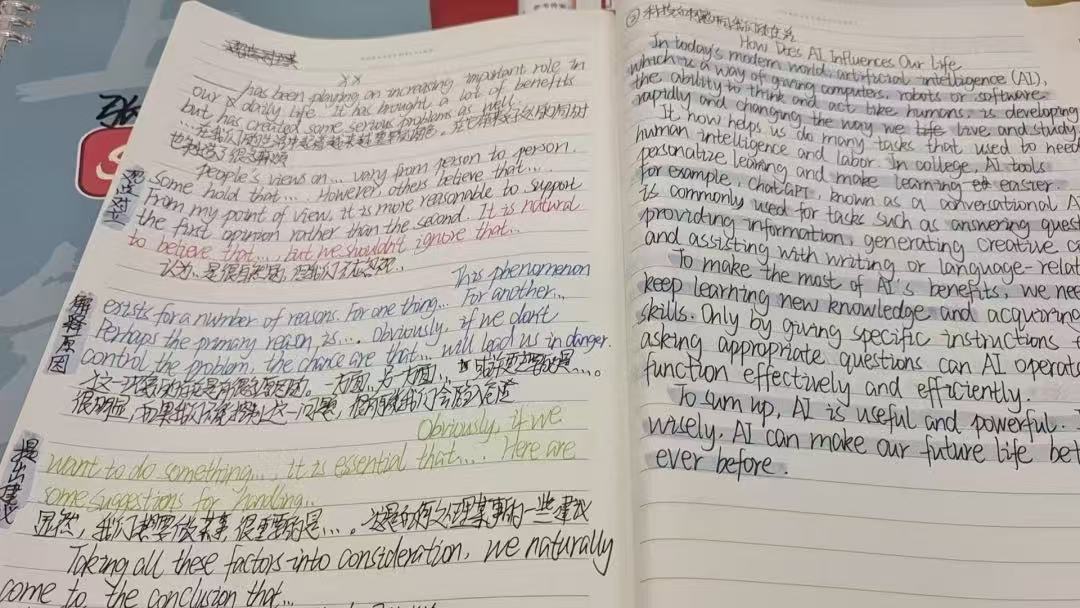 参考答案
张
XX
has been playing an increasing important role in
our daily life. it has brought a lot of benefits
but has created some serious problems as well.
...在我们的生活中起着越来越重要的角色。
People's views on... vary from person to person.
观点对立
Some hold that... . However, others believe that... .
From my point of view, it is more reasonable to support
the first opinion rather than the second. It is natural
to believe that..., but we shouldn't ignore that...
This phenomenon
解释原因
exists for a number of reasons. For one thing... For another...
Perhaps the primary reason is... . Obviously, if we don't
control the problem, the chance are that... will lead us in danger.
很明显,如果我们不能控制这一问题,很可能我们会陷入危险
Obviously, if we
提出建议
want to do something..., it is essential that... . Here are
some suggestions for handling...
显然,我们想要做某事,很重要的是...。这是如何处理某事的一些建议
Taking all these factors into consideration, we naturally
come to the conclusion that...
How Does AI Influences Our Life
In today's modern world, artificial intelligence (AI),
which is a way of giving computers, robots or software
the ability to think and act like humans, is developing
rapidly and changing the way we live and study
It now helps us do many tasks that used to need
human intelligence and labor. In college, AI tools
personalize learning and make learning easier.
For example, chatGPT, known as a conversational A
is commonly used for tasks such as answering quest
providing information, generating creative co
and assisting with writing or language-relat
To make the most of AI's benefits, we nee
keep learning new knowledge and acquiring
skills. Only by giving specific instructions
asking appropriate questions can AI operate
function effectively and efficiently.
To sum up, AI is useful and powerful.
wisely, AI can make our future life bet
ever before.